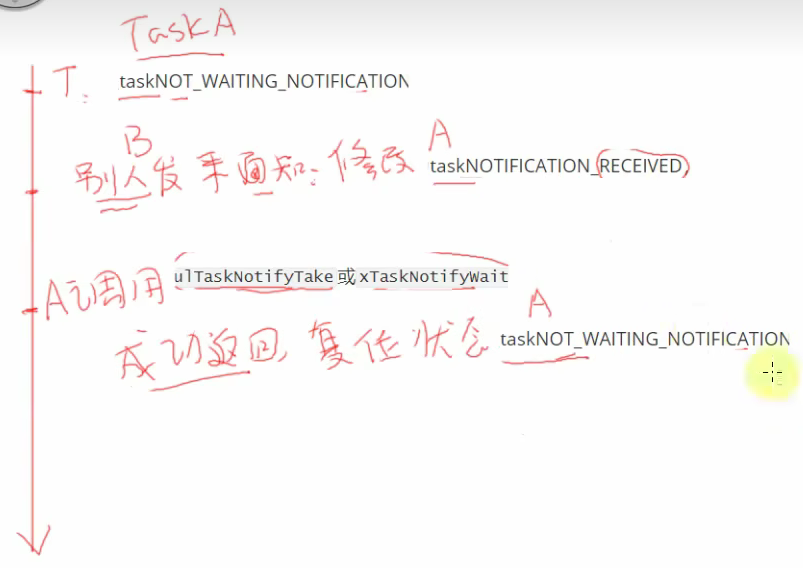 TaskA
T: taskNOT_WAITING_NOTIFICATION
B A
别人发来通知:修改 taskNOTIFICATION_(RECEIVED)
A:调用 ulTaskNotifyTake 或 xTaskNotifyWait
A
成功返回,复位状态 taskNOT_WAITING_NOTIFICATION